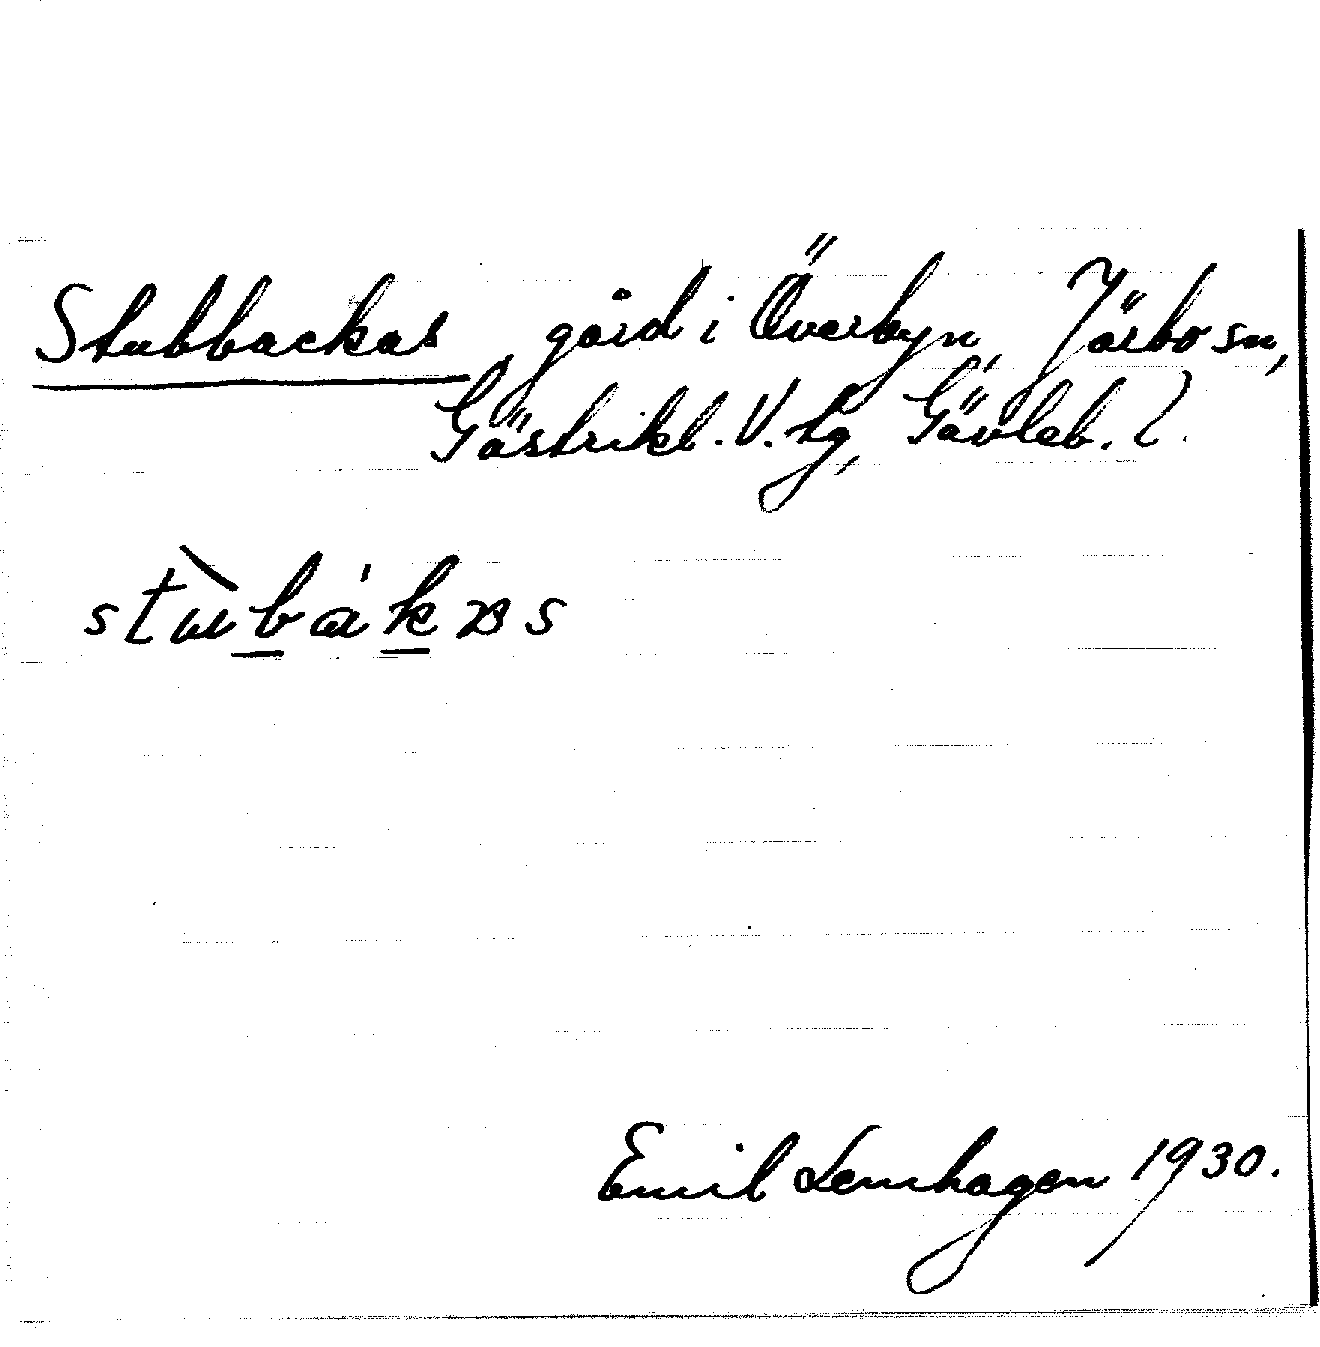 Stubbackas, gård i Överbyn, Järbo sn,
Gästrikl. V. tg, Gävleb. l.
Emil Lenhagen 1930.